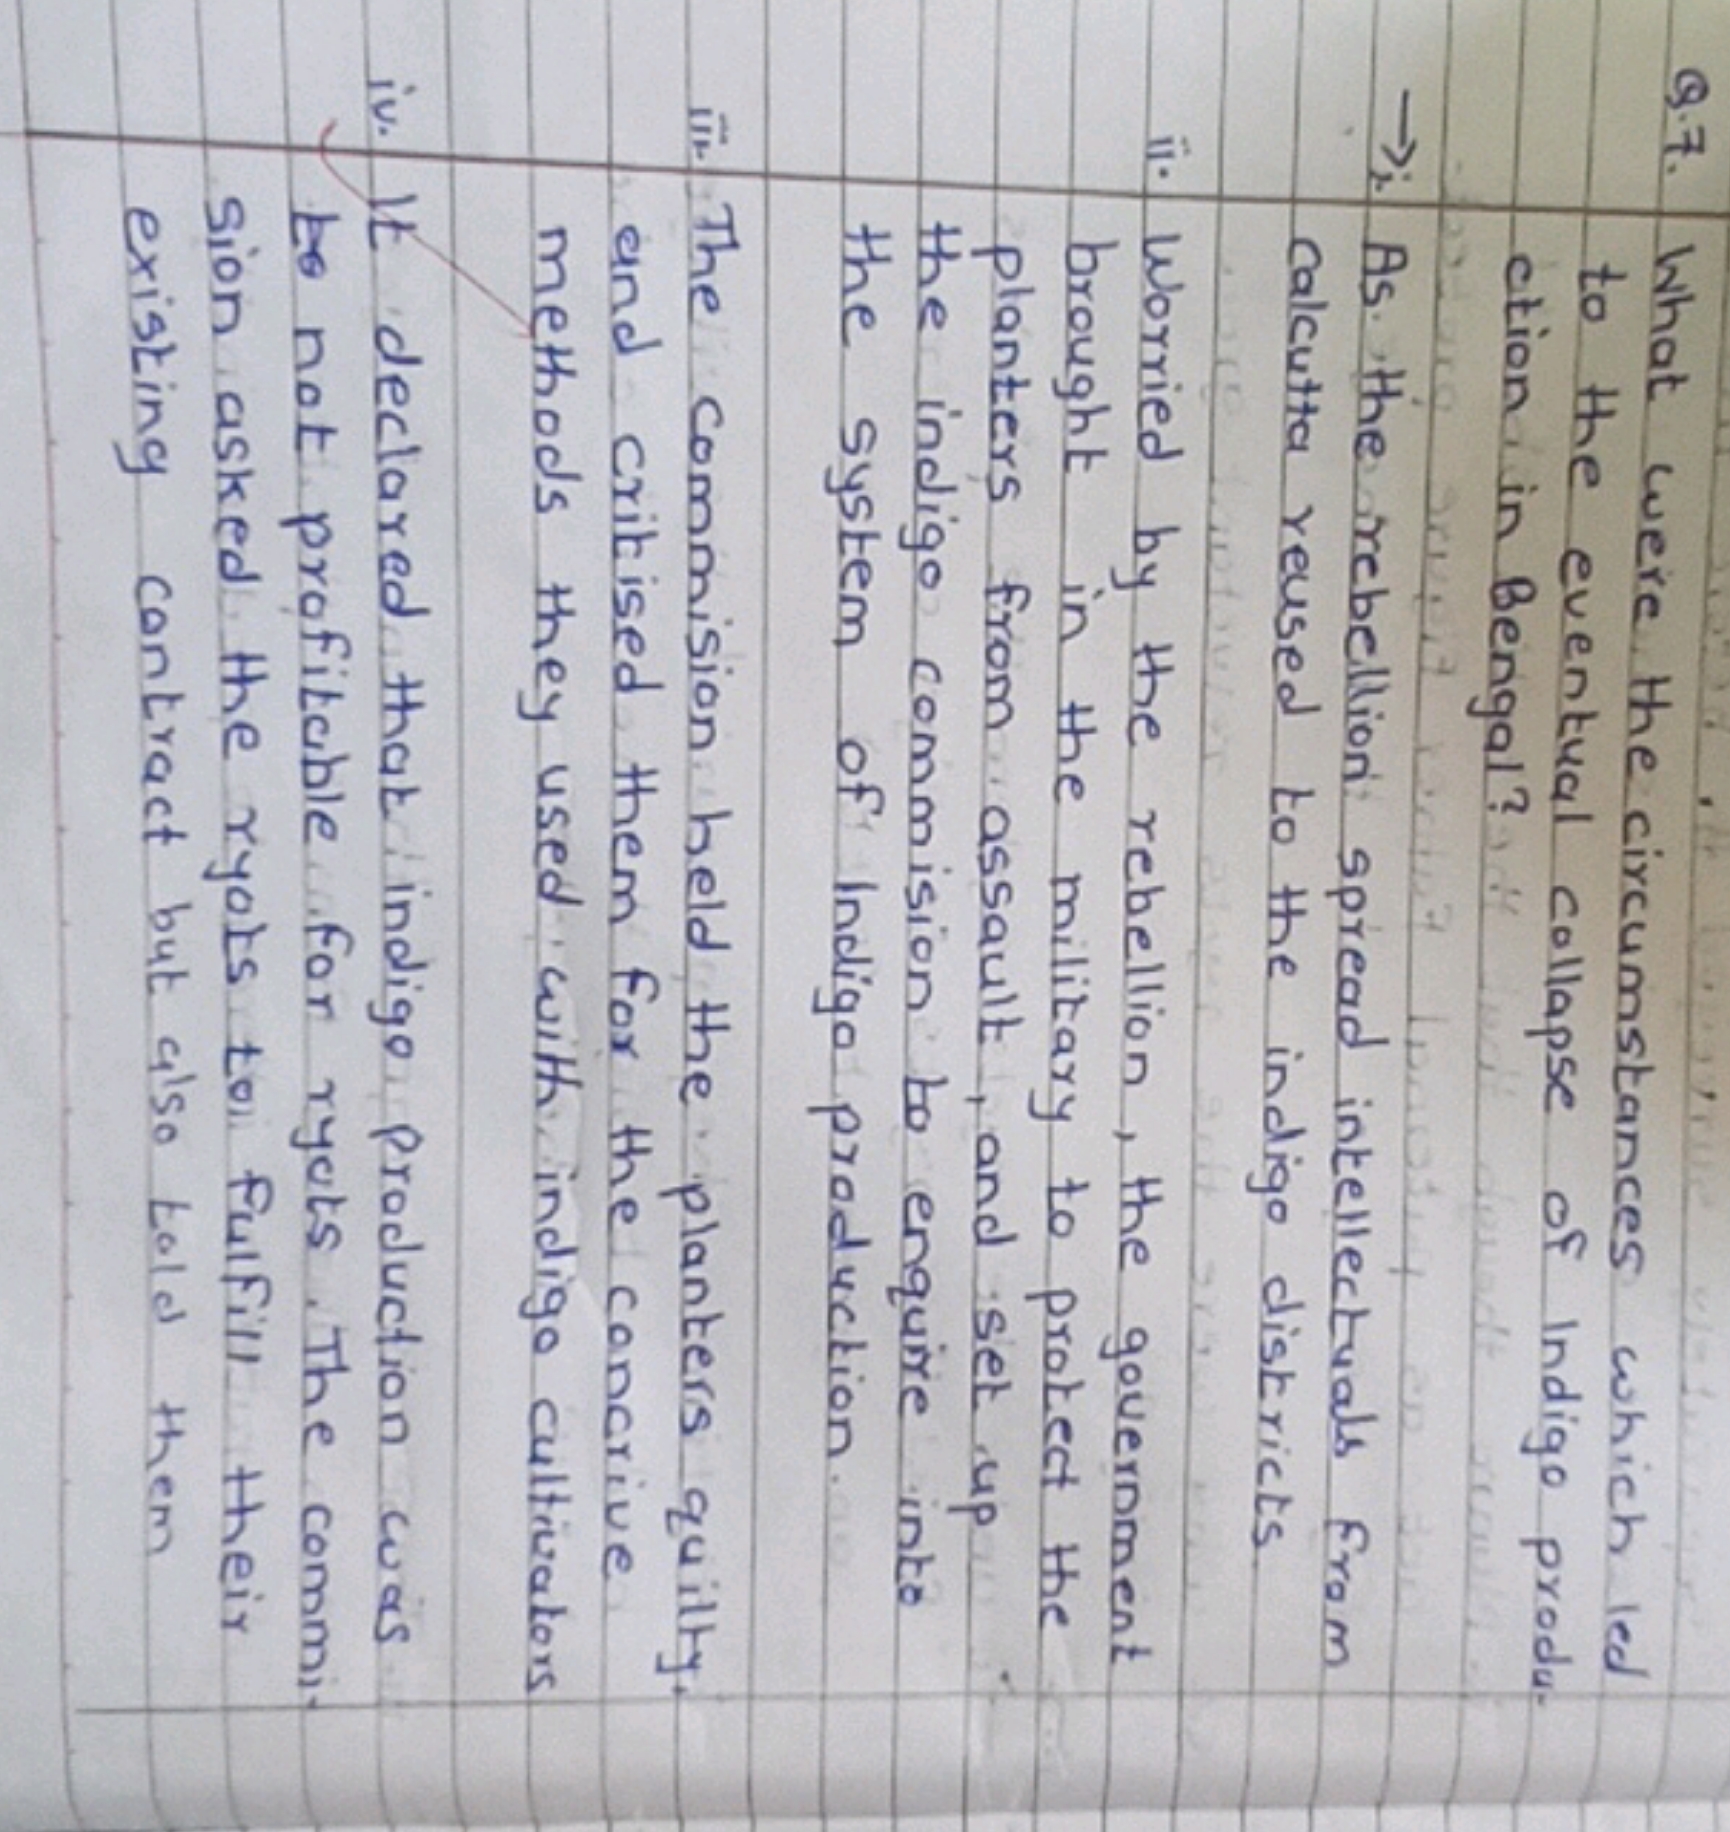 Q.7. What were the circumstances which led
to the eventual collapse of Indigo produ-
ction in Bengal?
→i. As the rebellion spread intellectuals from
Calcutta reused to the indigo districts
ii. Worried by the rebellion, the government
brought in the military to protect the
planters from assault, and set up
the indigo commision to enquire into
the system of Indigo production.
iii. The commision held the planters quilty,
and critised them for the concrive
methods they used with indigo cultivators
iv. It declared that indigo production was
not profitable for ryots. The commi-
sion asked the ryots to fulfill their
existing contract but also told them